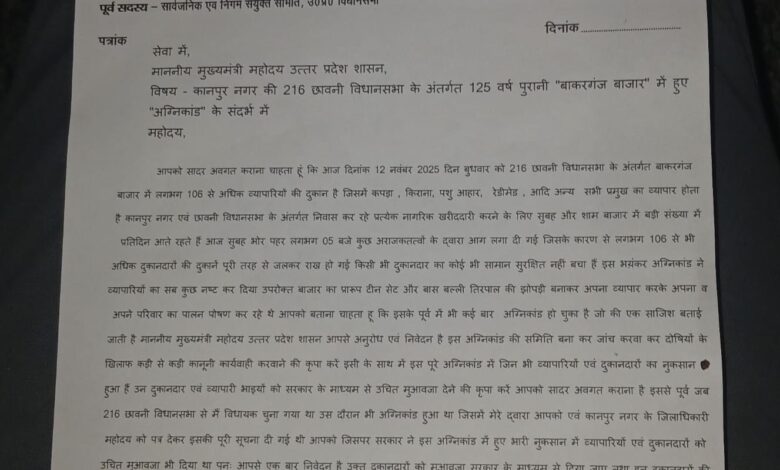 पूर्व सदस्य – सार्वजनिक एवं निगम संयुक्त समिति, उ०प्र० विधानसभा
दिनांक
पत्रांक
सेवा में,
माननीय मुख्यमंत्री महोदय उत्तर प्रदेश शासन,
विषय - कानपुर नगर की 216 छावनी विधानसभा के अंतर्गत 125 वर्ष पुरानी "बाकरगंज बाजार" में हुए
"अग्निकांड" के संदर्भ में
महोदय,
आपको सादर अवगत कराना चाहता हूं कि आज दिनांक 12 नवंबर 2025 दिन बुधवार को 216 छावनी विधानसभा के अंतर्गत बाकरगंज
बाजार में लगभग 106 से अधिक व्यापारियों की दुकान है जिसमें कपड़ा , किराना, पशु आहार, रेडीमेड , आदि अन्य सभी प्रमुख का व्यापार होता
है कानपुर नगर एवं छावनी विधानसभा के अंतर्गत निवास कर रहे प्रत्येक नागरिक खरीददारी करने के लिए सुबह और शाम बाजार में बड़ी संख्या में
प्रतिदिन आते रहते हैं आज सुबह भोर पहर लगभग 05 बजे कुछ अराजकतत्वों के द्वारा आग लगा दी गई जिसके कारण से लगभग 106 से भी
अधिक दुकानदारों की दुकानें पूरी तरह से जलकर राख हो गई किसी भी दुकानदार का कोई भी सामान सुरक्षित नहीं बचा हैं इस भयंकर अग्निकांड ने
व्यापारियों का सब कुछ नष्ट कर दिया उपरोक्त बाजार का प्रारूप टीन सेट और बास बल्ली तिरपाल की झोपड़ी बनाकर अपना व्यापार करके अपना व
अपने परिवार का पालन पोषण कर रहे थे आपको बताना चाहता हू कि इसके पूर्व में भी कई बार अग्निकांड हो चुका है जो की एक साजिश बताई
जाती है माननीय मुख्यमंत्री महोदय उत्तर प्रदेश शासन आपसे अनुरोध एवं निवेदन है इस अग्निकांड की समिति बना कर जांच करवा कर दोषियों के
खिलाफ कड़ी से कड़ी कानूनी कार्यवाही करवाने की कृपा करें इसी के साथ में इस पूरे अग्निकांड में जिन भी व्यापारियों एवं दुकानदारों का नुकसान
हुआ हैं उन दुकानदार एवं व्यापारी भाइयों को सरकार के माध्यम से उचित मुआवजा देने की कृपा करें आपको सादर अवगत कराना है इससे पूर्व जब
216 छावनी विधानसभा से मैं विधायक चुना गया था उस दौरान भी अग्निकांड हुआ था जिसमें मेरे द्वारा आपको एवं कानपुर नगर के जिलाधिकारी
महोदय को पत्र देकर इसकी पूरी सूचना दी गई थी आपको जिसपर सरकार ने इस अग्निकांड में हुए भारी नुकसान में व्यापारियों एवं दुकानदारों को
उचित मुआवजा भी दिया था पुनः आपसे एक बार निवेदन है उक्त दुकानदारों को मुआवजा सरकार के माध्यम से दिया जाए तथा इन दुकानदारों की